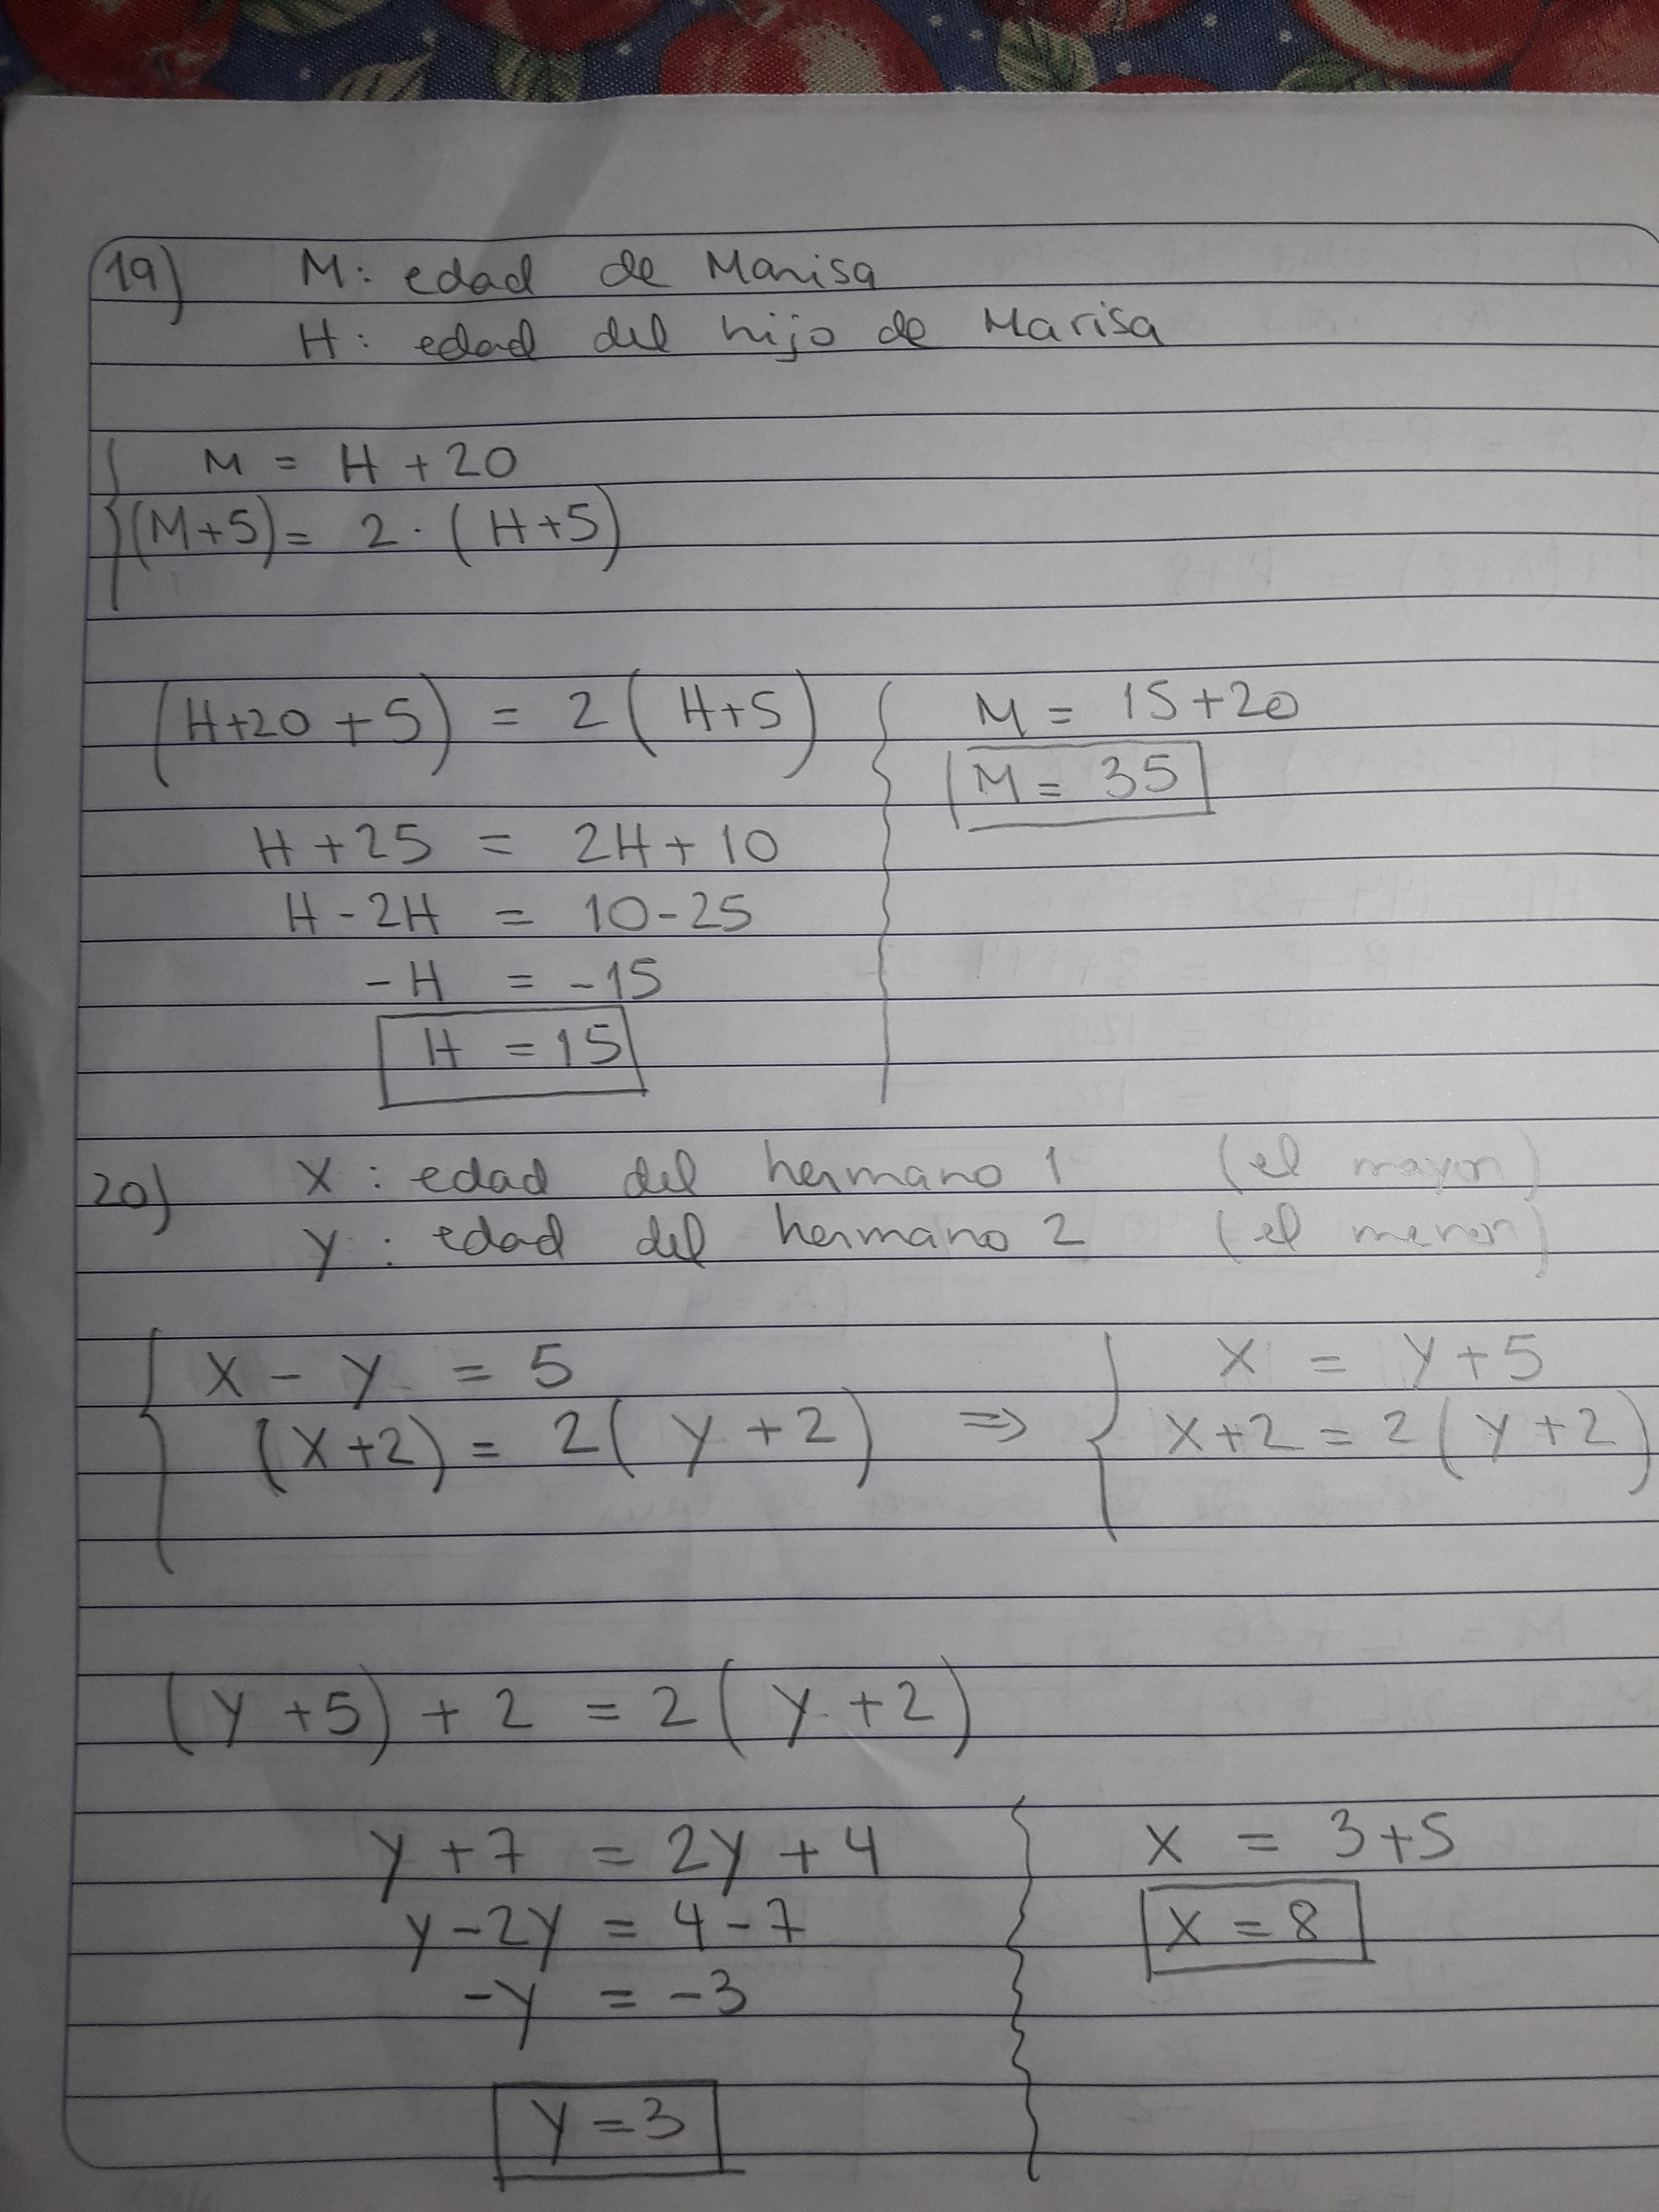 19) M: edad de Marisa
H: edad del hijo de Marisa
M = H + 20
(M+5) = 2 · (H+5)
(H+20 + 5) = 2 ( H+5)
H + 25 = 2H + 10
H - 2H = 10 - 25
- H = - 15
H = 15
M = 15 + 20
M = 35
20) X : edad del hermano 1 (el mayor)
Y : edad del hermano 2 (el menor)
X - Y = 5
(X+2) = 2( Y + 2)
=> X = Y + 5
X+2 = 2(Y+2)
(Y + 5) + 2 = 2( Y + 2)
Y + 7 = 2Y + 4
Y - 2Y = 4 - 7
- Y = - 3
Y = 3
X = 3+5
X = 8